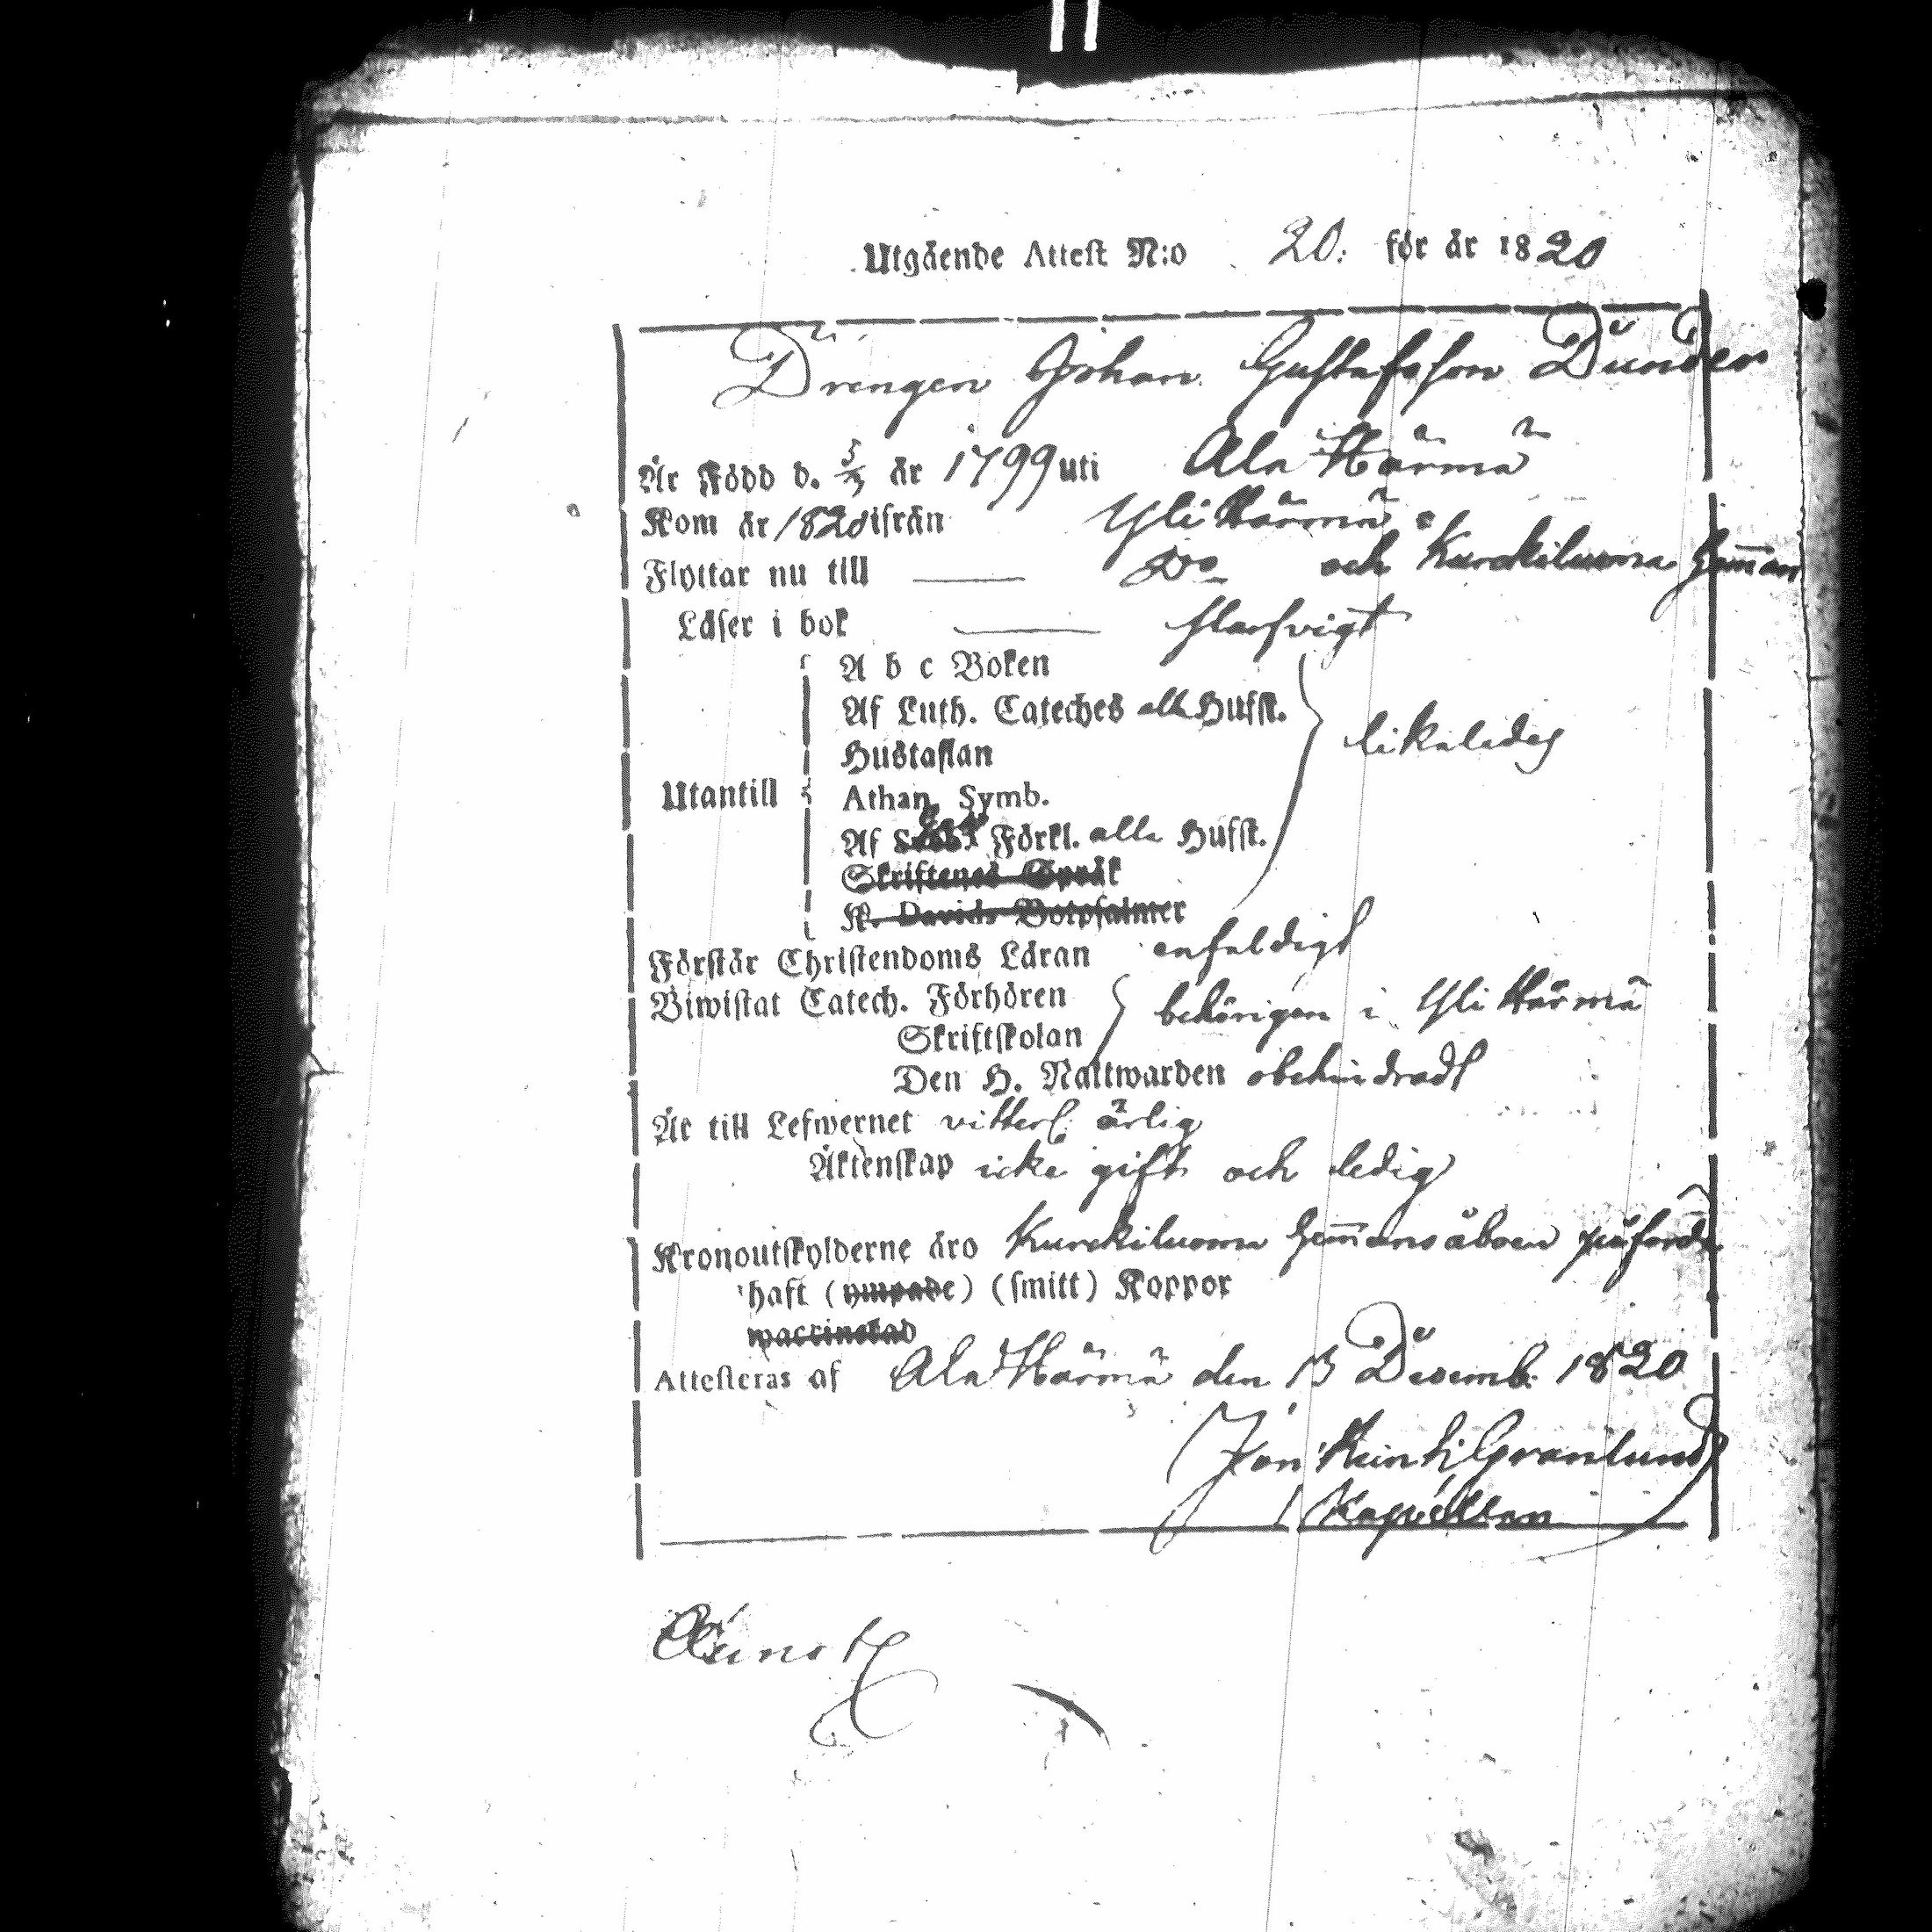 Utgående Attest N:o 20: för år 1820
Drengen Johan Gustafsson Dunder
Är Född d. år 1799 uti Ala Härmä
Kom år 1820 ifrån Yli Härmä
Flyttar nu till — Do och Kurckiluoma Hem̄an
Läser i bok — slarfvigt
A b c Boken
Af Luth. Cateches alla Hufst.
Hustaflan
likaledes
Utantill Athan. Symb.
Af Förkl. alla Hufst.
Skriftenes Språk
K. Davids Botpsalmer
Förstår Christendoms Läran enfaldigt
Biwistat Catech. Förhören
behörigen i Yli Härmä
Skriftskolan
Den H. Nattwarden obehindradt
Är till Lefwernet vitterl. ärlig
Äktenskap icke gift och ledig
Kronoutskylderne äro Kurckiluoma Hem̄ansåboen påförde
haft (ympade) (smitt) Koppor
waccinerad
Attesteras af Ala Härmä den 13 Decemb. 1820
Granlund
Kapellan